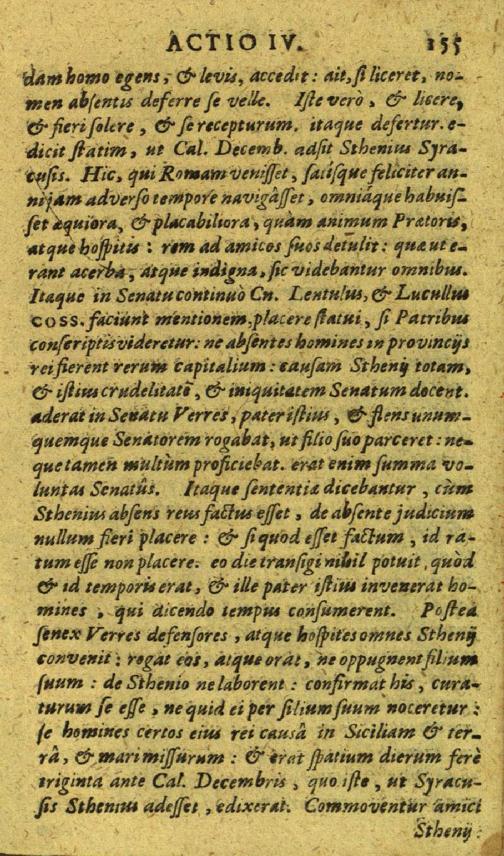 ACTIO IV. 155
dam homo egens, & levis, accedit: ait, si liceret, no-
men absentis deferre se velle. Iste verò, & licere,
& fieri solere, & se recepturum. itaque defertur. e-
dicit statim, ut Cal. Decemb. adsit Sthenius Syra-
cusis. Hic, qui Romam venisset, satisque feliciter an-
ni jam adverso tempore navigâsset, omniáque habuis-
set æquiora, & placabiliora, quàm animum Prætoris,
atque hospitis: rem ad amicos suos detulit: quæ ut e-
rant acerba, atque indigna, sic videbantur omnibus.
Itaque in Senatu continuò Cn. Lentulus, & Lucullus
COSS. faciunt mentionem, placere statui, si Patribus
conscriptis videretur: ne absentes homines in provinciis
rei fierent rerum capitalium: causam Sthenij totam,
& istius crudelitatē, & iniquitatem Senatum docent.
aderat in Senatu Verres, pater istius, & flens unum-
quemque Senatorem rogabat, ut filio suo parceret: ne-
que tamen multùm proficiebat. erat enim summa vo-
luntas Senatûs. Itaque sententiæ dicebantur, cùm
Sthenius absens reus factus esset, de absente judicium
nullum fieri placere: & si quod esset factum, id ra-
tum esse non placere. eo die transigi nihil potuit, quòd
& id temporis erat, & ille pater istius invenerat ho-
mines, qui dicendo tempus consumerent. Postea
senex Verres defensores, atque hospites omnes Sthenij
convenit: rogat eos, atque orat, ne oppugnent filium
suum: de Sthenio ne laborent: confirmat his, cura-
turum se esse, ne quid ei per filium suum noceretur:
se homines certos eius rei causâ in Siciliam & ter-
râ, & mari missurum: & erat spatium dierum ferè
triginta ante Cal. Decembris, quo iste, ut Syracu-
sis Sthenius adesset, edixerat. Commoventur amici
Sthenij: